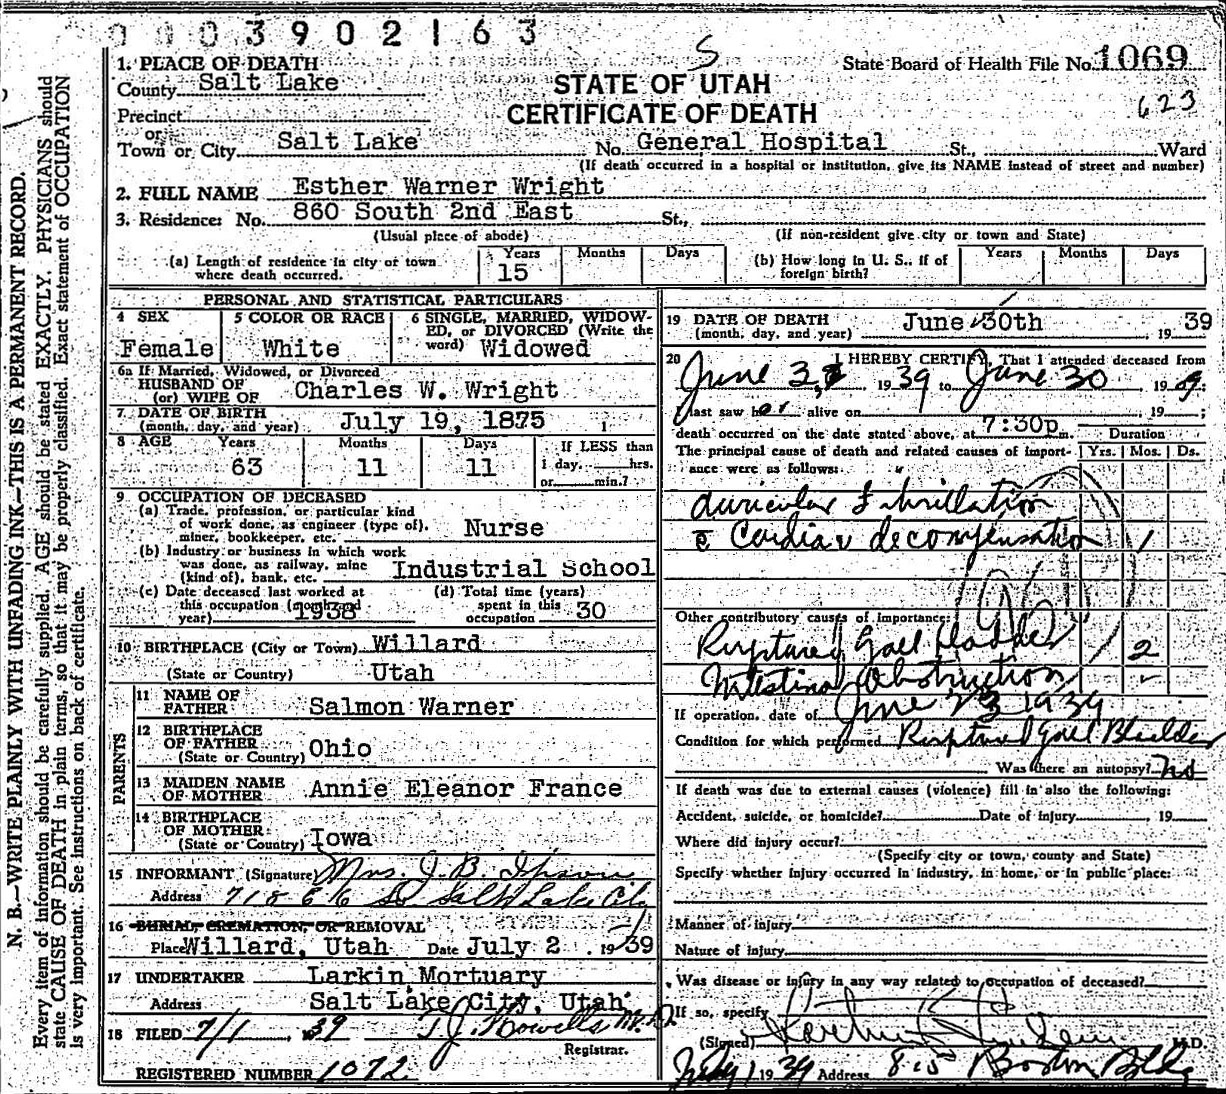 0003902163
S
1. PLACE OF DEATH
County Salt Lake
State Board of Health File No. 1069
STATE OF UTAH
CERTIFICATE OF DEATH
623
Precinct
or
Town or City Salt Lake No. General Hospital St., Ward
(If death occurred in a hospital or institution, give its NAME instead of street and number)
2. FULL NAME Esther Warner Wright
3. Residence: No. 860 South 2nd East St.,
(Usual place of abode) (If non-resident give city or town and State)
(a) Length of residence in city or town where death occurred. Years 15 Months Days
(b) How long in U. S., if of foreign birth? Years Months Days
PERSONAL AND STATISTICAL PARTICULARS
4 SEX Female
5 COLOR OR RACE White
6 SINGLE, MARRIED, WIDOWED, or DIVORCED (Write the word) Widowed
6a If Married, Widowed, or Divorced
HUSBAND OF
(or) WIFE OF Charles W. Wright
7 DATE OF BIRTH
(month, day, and year) July 19, 1875
8 AGE Years 63 Months 11 Days 11 If LESS than 1 day, hrs. or min.?
9 OCCUPATION OF DECEASED
(a) Trade, profession, or particular kind of work done, as engineer (type of), miner, bookkeeper, etc. Nurse
(b) Industry or business in which work was done, as railway, mine (kind of), bank, etc. Industrial School
(c) Date deceased last worked at this occupation (month and year) 1938
(d) Total time (years) spent in this occupation 30
10 BIRTHPLACE (City or Town) Willard
(State or Country) Utah
PARENTS
11 NAME OF FATHER Salmon Warner
12 BIRTHPLACE OF FATHER (State or Country) Ohio
13 MAIDEN NAME OF MOTHER Annie Eleanor France
14 BIRTHPLACE OF MOTHER: (State or Country) Iowa
15 INFORMANT (Signature) Mrs. J. B.
Address 718 E 16 So Salt Lake City
16 BURIAL, CREMATION, OR REMOVAL
Place Willard, Utah Date July 2 1939
17 UNDERTAKER Larkin Mortuary
Address Salt Lake City, Utah
18 FILED 7/1 39 T. J. Howells M.D.
Registrar.
REGISTERED NUMBER 1072
19 DATE OF DEATH
(month, day, and year) June 30th 1939
20 I HEREBY CERTIFY, That I attended deceased from
June 3, 1939 to June 30 1939;
I last saw her alive on 19 ;
death occurred on the date stated above, at 7:30p m. Duration
The principal cause of death and related causes of importance were as follows: Yrs. Mos. Ds.
Auricular Fibrillation
c Cardiac decompensation 1
Other contributory causes of importance:
Ruptured Gall Bladder 2
Intestinal Obstruction
If operation, date of June 23 1939
Condition for which performed Ruptured Gall Bladder
Was there an autopsy? no
If death was due to external causes (violence) fill in also the following:
Accident, suicide, or homicide? Date of injury 19
Where did injury occur?
(Specify city or town, county and State)
Specify whether injury occurred in industry, in home, or in public place:
Manner of injury
Nature of injury
Was disease or injury in any way related to occupation of deceased?
If so, specify
(Signed) M.D.
July 1 1939 Address 815 Boston Bldg
N. B.—WRITE PLAINLY WITH UNFADING INK—THIS IS A PERMANENT RECORD.
Every item of information should be carefully supplied. AGE should be stated EXACTLY. PHYSICIANS should
state CAUSE OF DEATH in plain terms, so that it may be properly classified. Exact statement of OCCUPATION
is very important. See instructions on back of certificate.